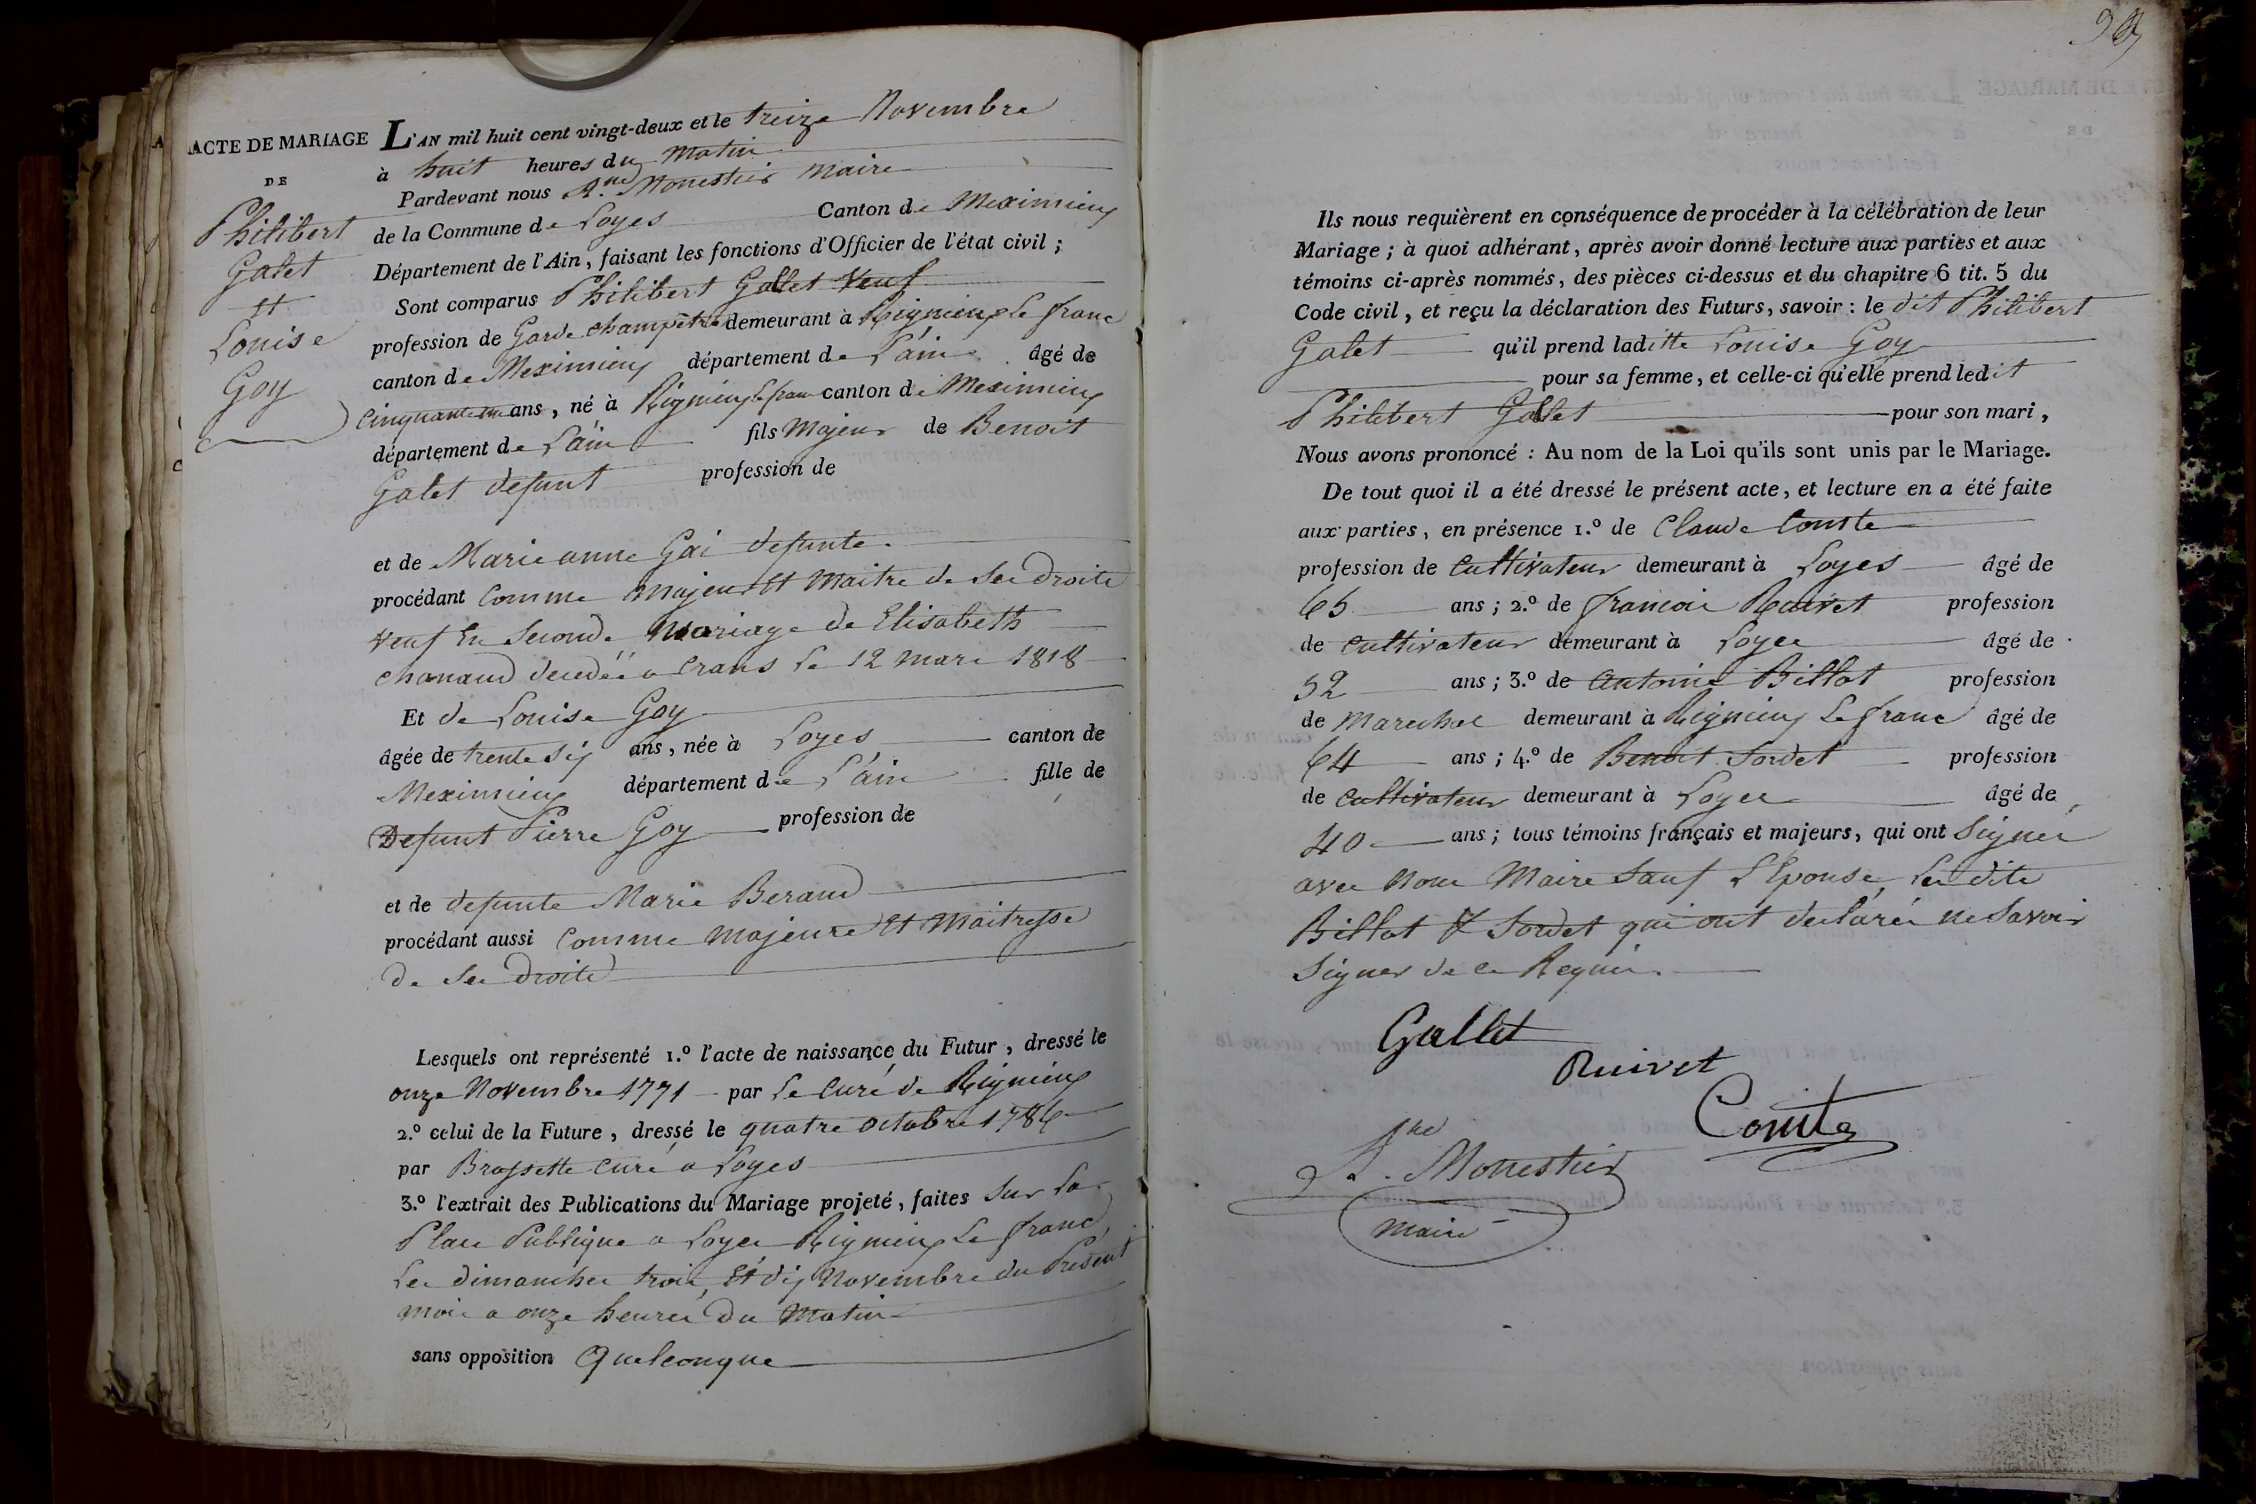 ACTE DE MARIAGE
DE
Philibert
Galet
et
Louise
Goy
L'AN mil huit cent vingt-deux et le treize Novembre
à huit heures du Matin
Pardevant nous A.ne Monestier Maire
de la Commune de Loyes Canton de Meximieux
Département de l'Ain, faisant les fonctions d'Officier de l'état civil ;
Sont comparus Philibert Gallet Veuf
profession de Garde champêtre demeurant à Rignieux Le franc
canton de Meximieux département de L'ain âgé de
Cinquante un ans, né à Rignieux le franc canton de Meximieux
département de L'ain fils Majeur de Benoit
Galet defunt profession de
et de Marie anne Gai defunte
procédant Comme Majeur Et Maitre de Ses droits
Veuf En Seconde Mariage de Elisabeth
chanaud decedée a Crans Le 12 Mars 1818
Et de Louise Goy
âgée de trente six ans, née à Loyes canton de
Meximieux département de L'ain fille de
Defunt Pierre Goy profession de
et de defunte Marie Beraud
procédant aussi Comme Majeure Et Maitresse
de Ses droits
Lesquels ont représenté 1.º l'acte de naissance du Futur, dressé le
onze Novembre 1771 par Le Curé de Rignieux
2.º celui de la Future, dressé le quatre octobre 1786
par Brossette Curé a Loyes
3.º l'extrait des Publications du Mariage projeté, faites Sur La
Place Publique a Loyes Rignieux Le franc,
Les dimanches trois, Et dix Novembre du Présent
Mois a onze heures du Matin
sans opposition Quelconque
Ils nous requièrent en conséquence de procéder à la célébration de leur
Mariage ; à quoi adhérant, après avoir donné lecture aux parties et aux
témoins ci-après nommés, des pièces ci-dessus et du chapitre 6 tit. 5 du
Code civil, et reçu la déclaration des Futurs, savoir : le dit Philibert
Galet qu'il prend ladite Louise Goy
pour sa femme, et celle-ci qu'elle prend ledit
Philibert Gallet pour son mari,
Nous avons prononcé : Au nom de la Loi qu'ils sont unis par le Mariage.
De tout quoi il a été dressé le présent acte, et lecture en a été faite
aux parties, en présence 1.º de Claude Comte
profession de Cultivateur demeurant à Loyes âgé de
65 ans ; 2.º de francois Ruivet profession
de Cultivateur demeurant à Loyes âgé de
52 ans ; 3.º de Antoine Billot profession
de Marechal demeurant à Rignieux Le franc âgé de
64 ans ; 4.º de Benoit Sordet profession
de Cultivateur demeurant à Loyes âgé de
40 ans ; tous témoins français et majeurs, qui ont Signés
avec Nous Maire Sauf L'Epouse, Les dits
Billot & Sordet qui ont declarés ne Savoir
Signer de ce Requis.
Gallet
Ruivet
Comte
A.ne Monestier
Maire